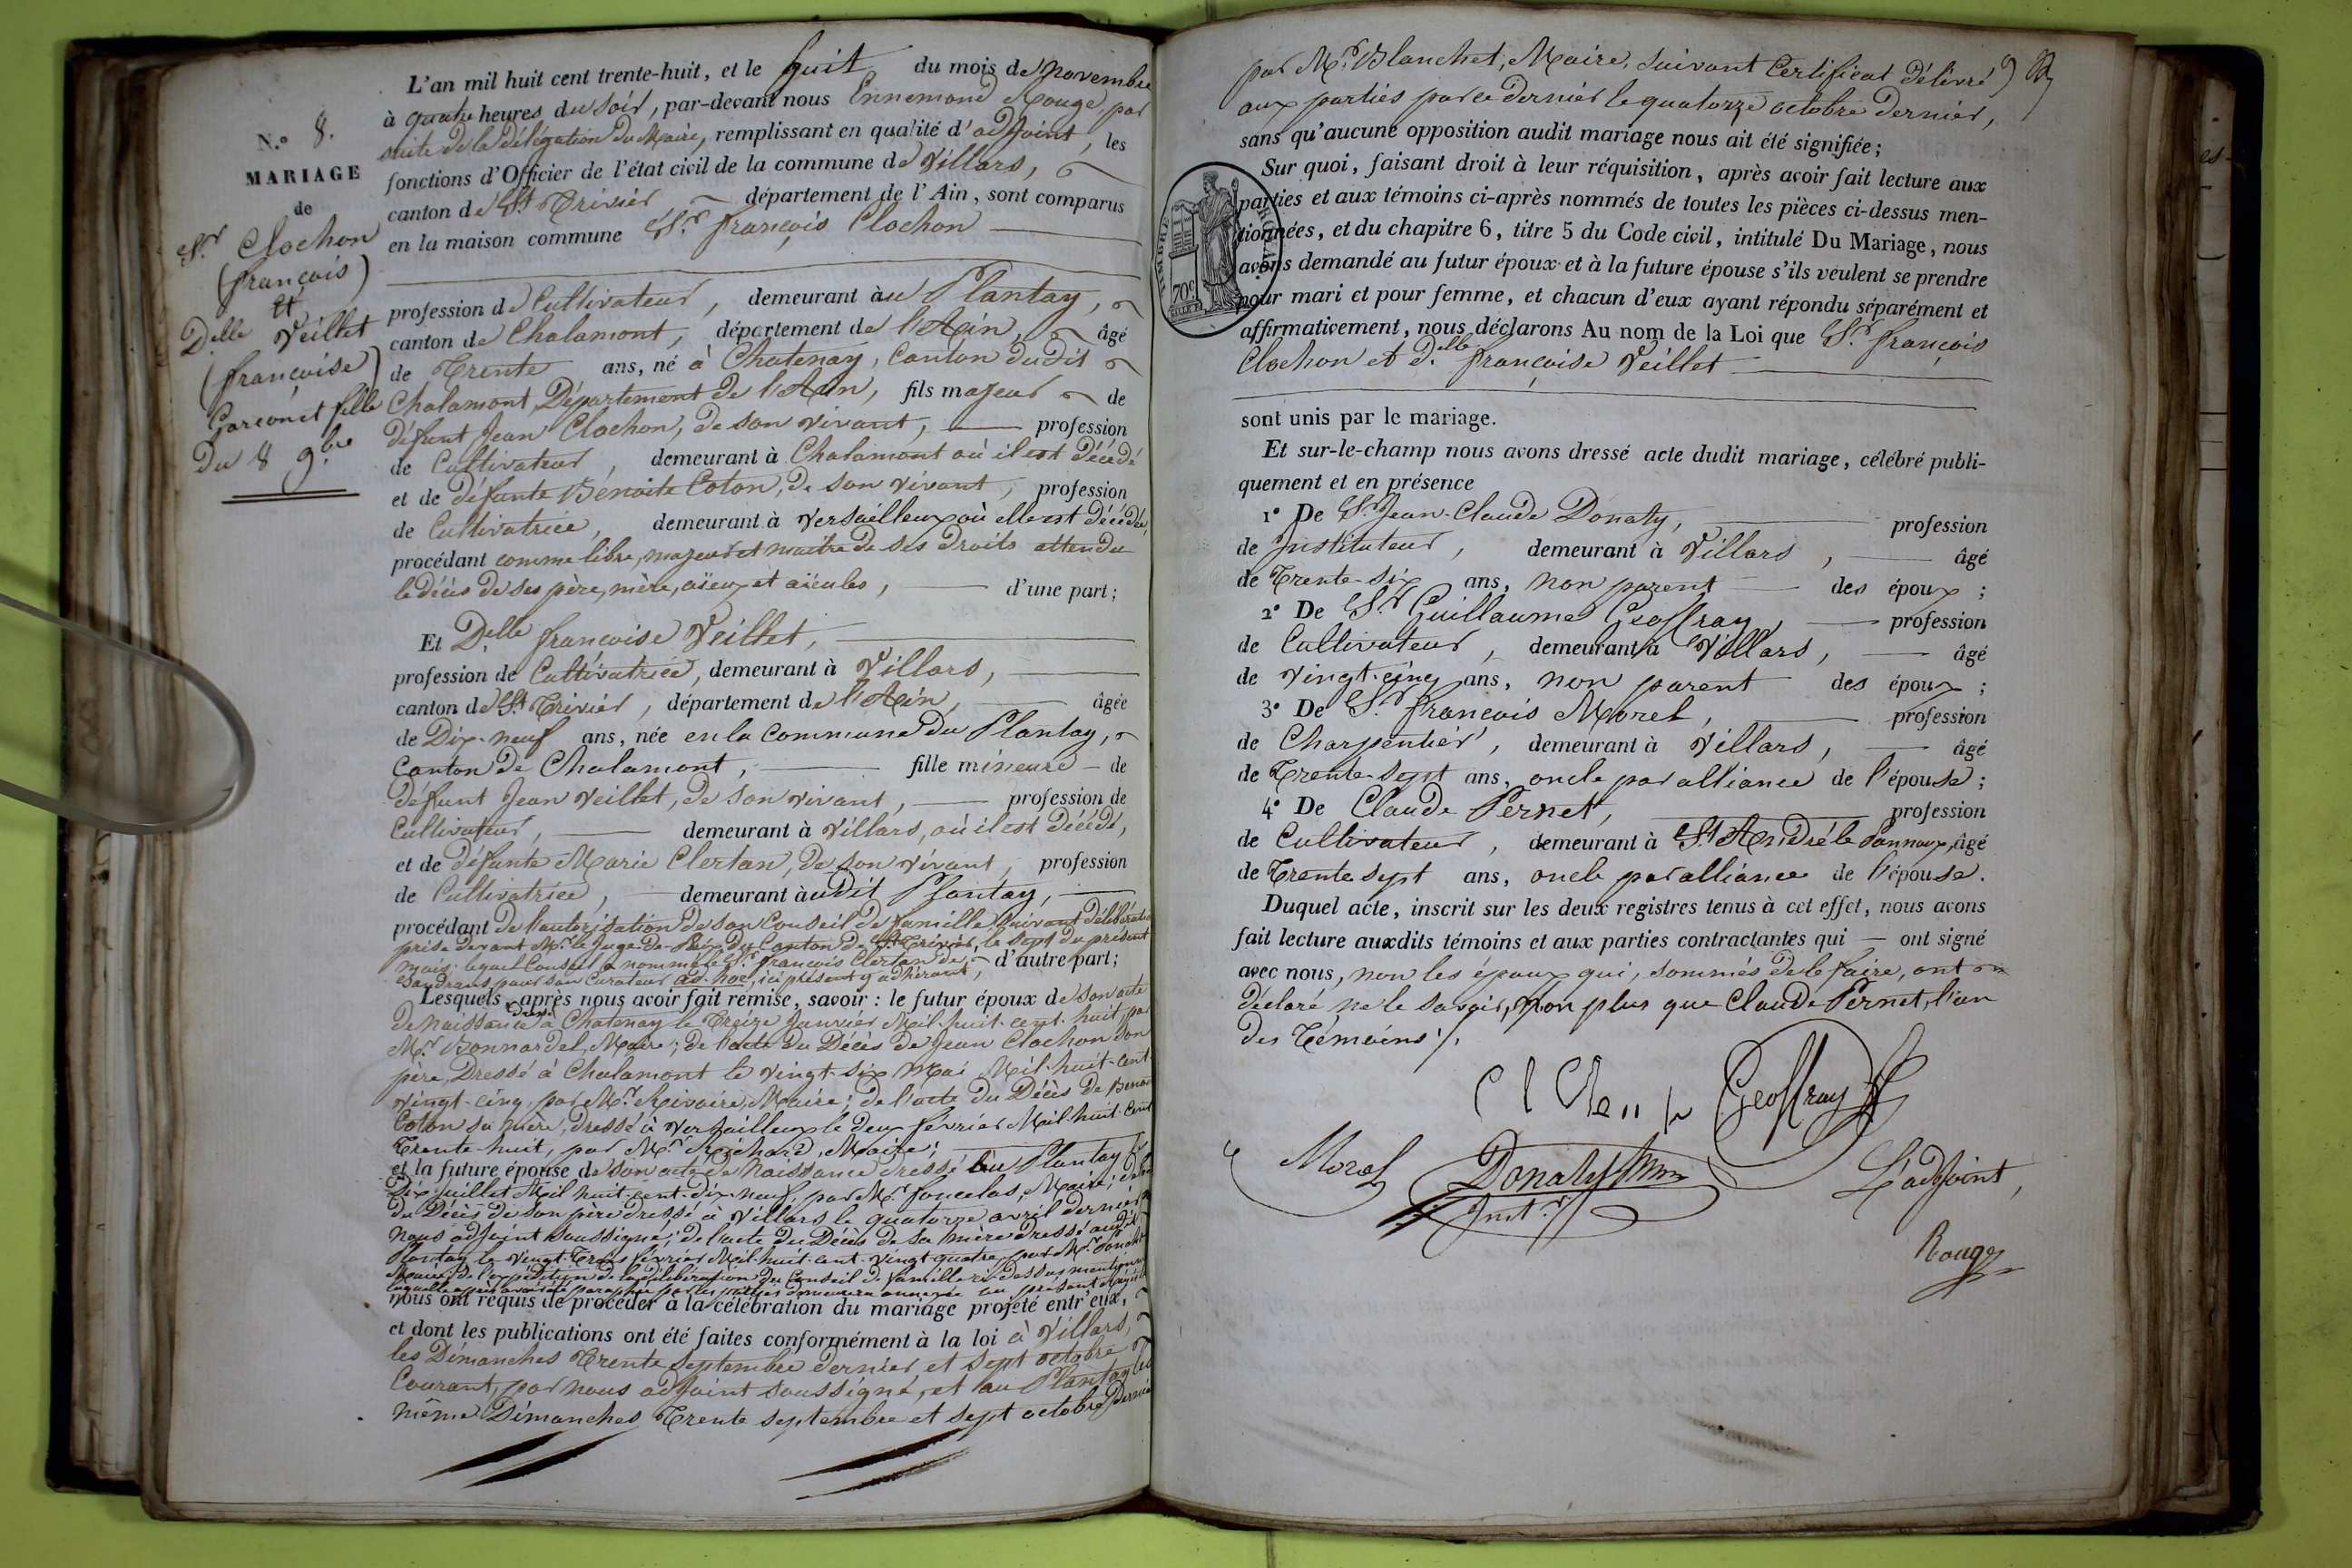 N.o 8.
MARIAGE
de
Sr. Clochon
(françois)
et
Delle Veillet
(françoise)
Garçon et fille
Du 8 9.bre
L'an mil huit cent trente-huit, et le huit du mois de novembre
à quatre heures du soir, par-devant nous Ennemond Rouge, par
suite de la délégation du Maire, remplissant en qualité d'adjoint, les
fonctions d'Officier de l'état civil de la commune de Villars,
canton de St. Trivier département de l'Ain, sont comparus
en la maison commune Sr. françois Clochon
profession de Cultivateur, demeurant au Plantay,
canton de Chalamont, département de l'Ain, âgé
de Trente ans, né à Chatenay, Canton dudit
Chalamont, Département de l'Ain, fils majeur de
défunt Jean Clochon, de son vivant, profession
de Cultivateur, demeurant à Chalamont où il est décédé
et de défunte Bénoite Coton, de son vivant, profession
de Cultivatrice, demeurant à Versailleux où elle est décédée,
procédant comme libre, majeur et maitre de ses droits attendu
le décès de ses père, mère, aïeux et aïeules, d'une part;
Et Delle françoise Veillet,
profession de Cultivatrice, demeurant à Villars,
canton de St. Trivier, département de l'Ain, âgée
de Dix-neuf ans, née en la Commune du Plantay,
Canton de Chalamont, fille mineure de
défunt Jean Veillet, de son vivant, profession de
Cultivateur, demeurant à Villars, où il est décédé,
et de défunte Marie Clertan, de son vivant, profession
de Cultivatrice, demeurant audit Plantay,
procédant de l'autorisation de son Conseil de famille suivant délibération
prise devant Mr. le Juge-de-Paix du Canton de St. Trivier, le sept du présent
mois; lequel Conseil a nommé le Sr. françois Clertan de d'autre part;
Sandrans pour son Curateur ad-hoc, ici présent y adhérant,
Lesquels, après nous avoir fait remise, savoir: le futur époux de son acte
de naissance dressé à Chatenay le Treize Janvier Mil-huit-cent-huit, par
Mr. Bonnardel, Maire; de l'acte du Décès de Jean Clochon son
père, Dressé à Chalamont le vingt-six Mai Mil-huit-cent-
vingt-cinq, par Mr. Rivoire, Maire; de l'acte du Décès de Benoite
Coton sa mère, dressé à Versailleux le deux février Mil-huit-cent
Trente-huit, par Mr. Richard, Maire;
et la future épouse de son acte de Naissance dressé au Plantay le
Dix Juillet Mil huit-cent-dix-neuf, par Mr. foncelas, Maire;
du Décès de son père dressé à Villars le quatorze avril dernier
nous adjoint soussigné; de l'acte du Décès de sa mère dressé audit
Plantay le vingt-Trois février Mil-huit-cent-vingt-quatre, par Mr.
Maire; de l'expédition de la délibération du Conseil de famille ci-dessus mentionnée
laquelle après avoir été paraphée par les parties demeurera annexée au présent
nous ont requis de procéder à la célébration du mariage projeté entr'eux,
et dont les publications ont été faites conformément à la loi à Villars,
les Dimanches Trente septembre dernier et sept octobre
Courant, par nous adjoint soussigné, et au Plantay les
même Dimanches Trente septembre et sept octobre dernier
par Mr. Blanchet, Maire, suivant Certificat délivré
aux parties par ce dernier le quatorze octobre dernier,
sans qu'aucune opposition audit mariage nous ait été signifiée;
Sur quoi, faisant droit à leur réquisition, après avoir fait lecture aux
parties et aux témoins ci-après nommés de toutes les pièces ci-dessus men-
tionnées, et du chapitre 6, titre 5 du Code civil, intitulé Du Mariage, nous
avons demandé au futur époux et à la future épouse s'ils veulent se prendre
pour mari et pour femme, et chacun d'eux ayant répondu séparément et
affirmativement, nous déclarons Au nom de la Loi que Sr. françois
Clochon et Delle. françoise Veillet
sont unis par le mariage.
Et sur-le-champ nous avons dressé acte dudit mariage, célébré publi-
quement et en présence
1° De Sr. Jean-Claude Donaty, profession
de Instituteur, demeurant à Villars, âgé
de Trente-six ans, non parent des époux;
2° De Sr. Guillaume Geoffray, profession
de Cultivateur, demeurant à Villars, âgé
de vingt-cinq ans, non parent des époux;
3° De Sr. françois Morel, profession
de Charpentier, demeurant à Villars, âgé
de Trente-sept ans, oncle par alliance de l'épouse;
4° De Claude Pernet, profession
de Cultivateur, demeurant à St. André le Pannoux, âgé
de Trente sept ans, oncle par alliance de l'épouse.
Duquel acte, inscrit sur les deux registres tenus à cet effet, nous avons
fait lecture auxdits témoins et aux parties contractantes qui — ont signé
avec nous, non les époux qui, sommés de le faire, ont
déclaré ne le savoir, non plus que Claude Pernet, l'un
des Témoins.
Geoffray
Morel
Donaty
Inst.r
L'adjoint,
Rouge
TIMBRE ROYAL
70c